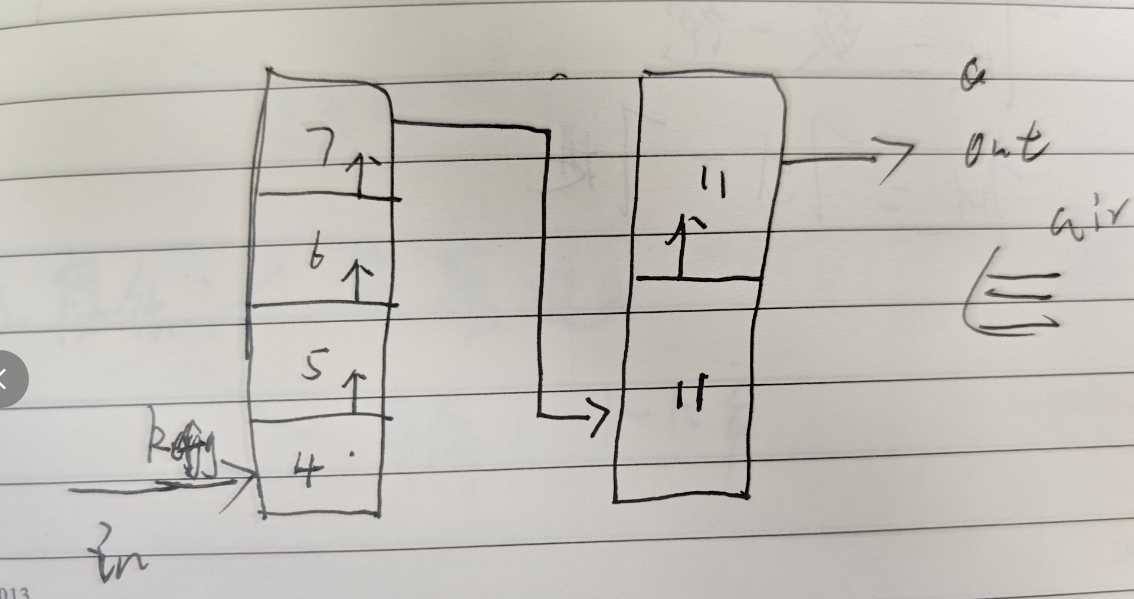 7
6
5
4
in
11
11
a
out
air
013